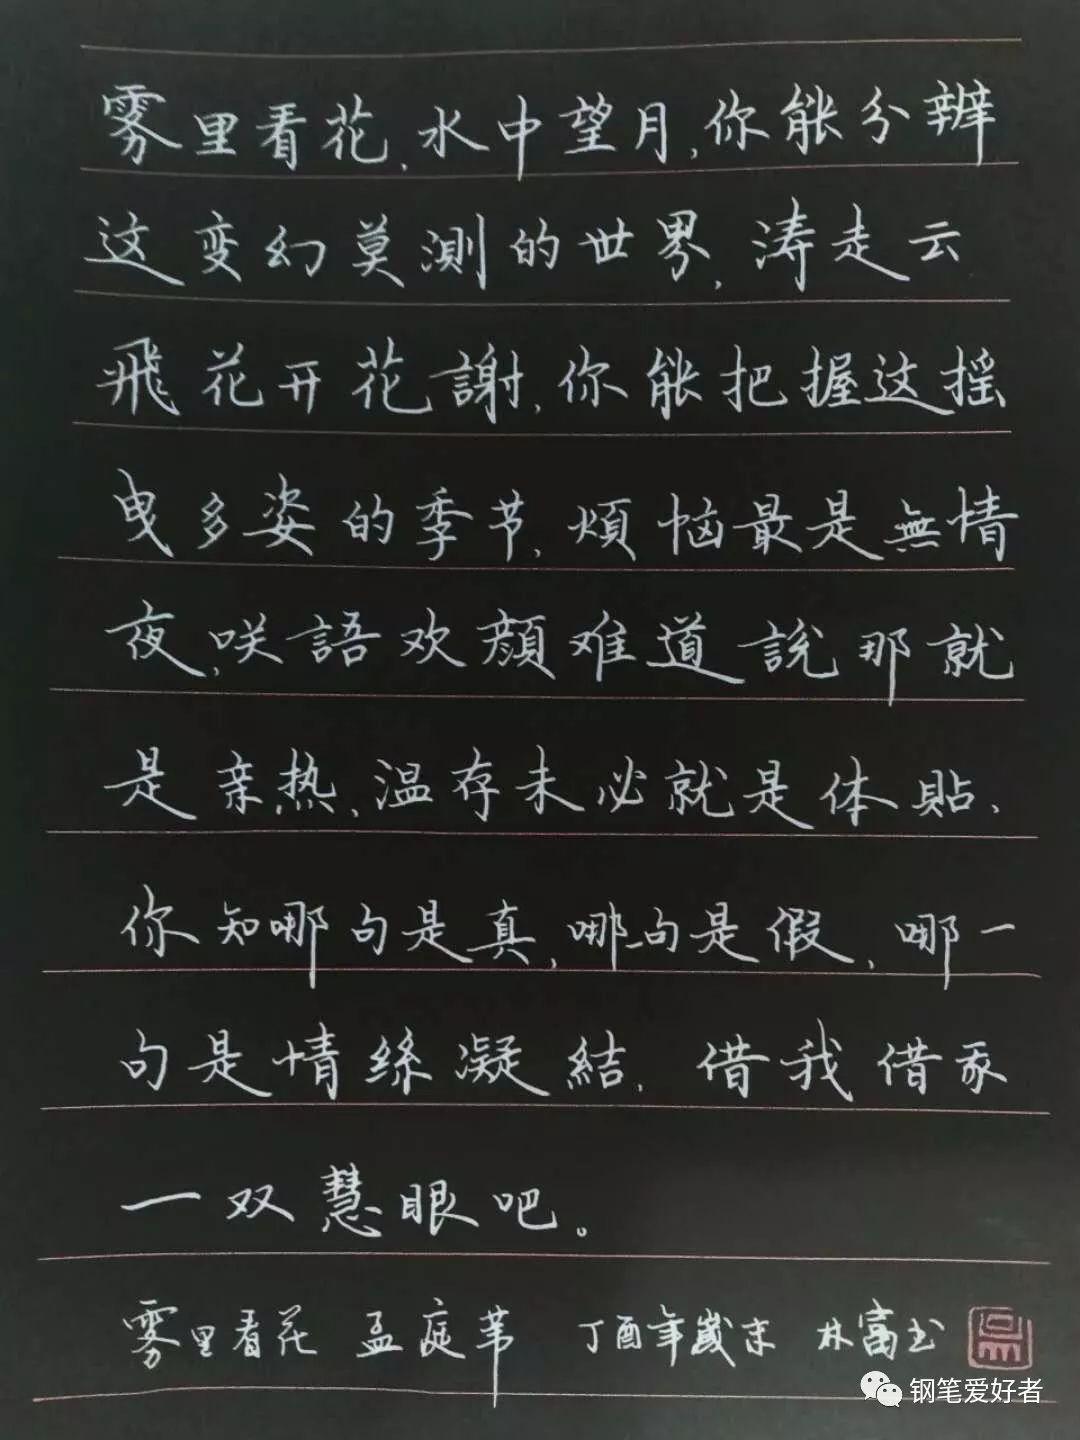 雾里看花,水中望月,你能分辨
这变幻莫测的世界,涛走云
飛花开花謝,你能把握这摇
曳多姿的季节,煩恼最是無情
夜,咲語欢顔难道説那就
是亲热,温存未必就是体貼、
你知哪句是真,哪一句是假,哪一
句是情絲凝結,借我借我
一双慧眼吧。
雾里看花 孟庭苇 丁酉年歲末 林富书
钢笔爱好者